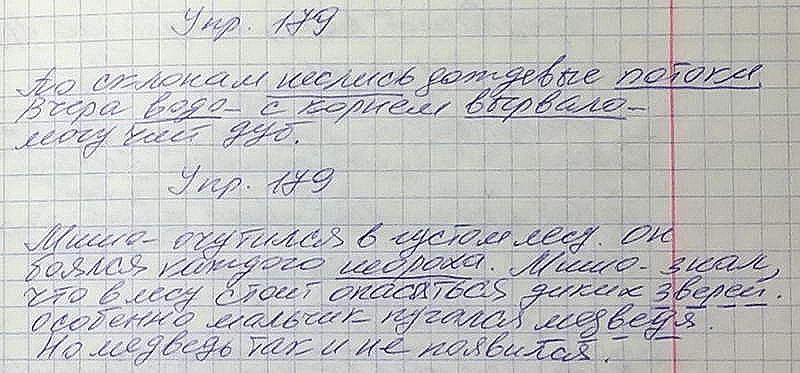 Упр. 179
По склонам неслись дождевые потоки
Вчера вода с корнем вырвала
могучий дуб.
Упр. 179
Миша очутился в густом лесу. Он
боялся каждого шороха. Миша знал,
что в лесу стоит опасяться диких зверей.
особенно мальчик пугался медведя.
Но медведь так и не появился.